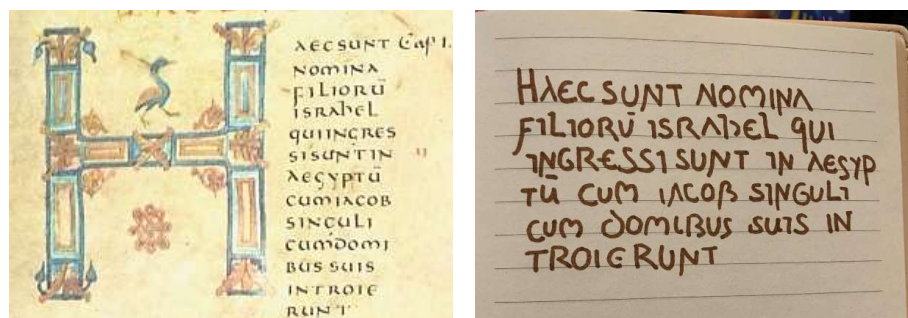 HAECSUNT Cap I.
NOMINA
FILIORŪ
ISRAhEL
QUIINGRES
SISUNTIN
AEGYPTŪ
CUMIACOB
SINGULI
CUMDOMI
BUSSUIS
INTROIE
RUNT
HAEC SUNT NOMINA
FILIORŪ ISRAhEL QUI
INGRESSI SUNT IN AEGYP
TŪ CUM IACOB SINGULI
CUM DOMIBUS SUIS IN
TROIERUNT